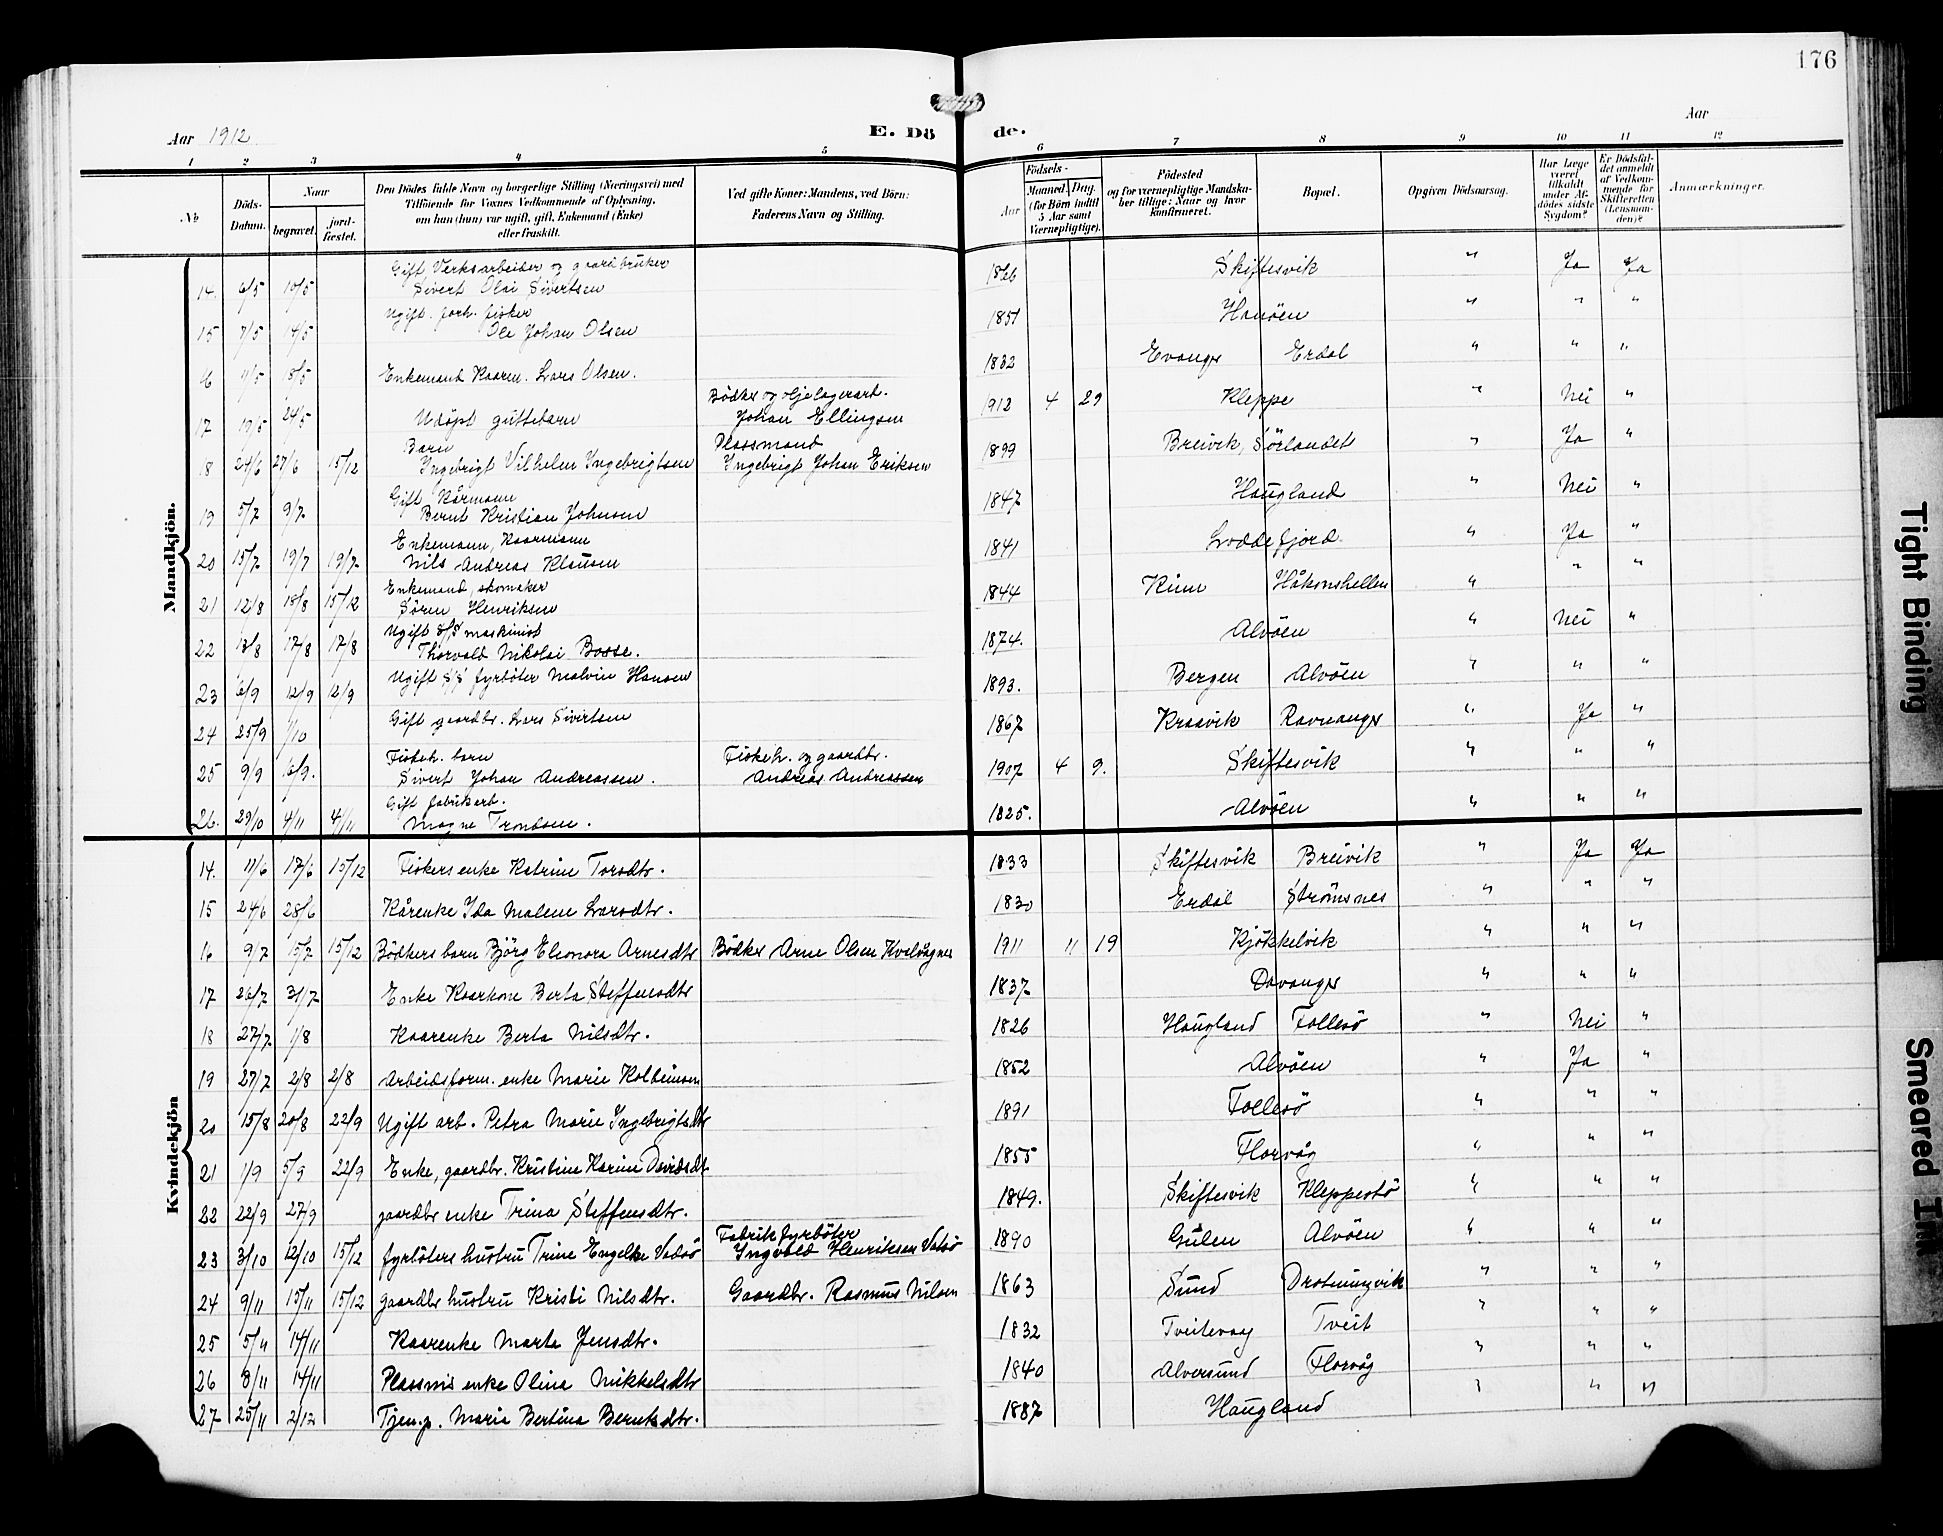 176
Aar 1912.
E. Dö de.
Aar
1 2 3 4 5 6 7 8 9 10 11 12
No
Döds-Datum.
Naar
begravet.
jord-fæstet.
Den Dödes fulde Navn og borgerlige Stilling (Næringsvei) med
Tilföiende for Voxnes Vedkommende af Oplysning,
om han (hun) var ugift, gift, Enkemand (Enke)
eller fraskilt.
Ved gifte Koner: Mandens, ved Börn:
Faderens Navn og Stilling.
Födsels-
Aar
Maaned. Dag.
(for Börn indtil
5 Aar samt
Værnepligtige).
Födested
og for værnepligtige Mandska-
ber tillige: Naar og hvor
konfirmeret.
Bopæl.
Opgiven Dödsaarsag.
Har Læge
været
tilkaldt
under Af-
dödes sidste
Sygdom?
Er Dödsfal-
det anmeldt
af Vedkom-
mende for
Skifteretten
(Lensman-
den)?
Anmærkninger.
Mandkjön.
14. 6/5 10/5 Gift, Verksarbeider og gaardbruker Sivert Olai Sivertsen 1866 Skiftesvik " Ja Ja
15 7/5 14/5 Ugift. forh. fisker Ole Johan Olsen 1851 Hanöen " " "
16 11/5 18/5 Enkemand Kaarm. Lars Olsen. 1832 Evanger Erdal " " "
17 19/5 24/5 Udöpt guttebarn Bödker og oljelagerarb. Johan Ellingsen 1912 4 29 Kleppe " Nei "
18 24/6 27/6 15/12 Barn Ingebrigt Vilhelm Ingebrigtsen Plassmand Ingebrigt Johan Eriksen 1899 Breivik, Sörlandet " Ja "
19 5/7 9/7 Gift Kårmann Bernt Kristian Johnsen 1847 Haugland " Nei "
20 15/7 19/7 19/7 Enkemann, Kaarmann Nils Andreas Klausen 1841 Loddefjord. " Ja "
21 12/8 15/8 15/12 Enkemand, skomaker Sören Henriksen 1844 Kinn Håkonshellen " " "
22 13/8 17/8 17/8 Ugift S/S maskinist Thorvald Nikolai Bosse. 1874. Alvöen " Nei "
23 6/9 12/9 12/9 Ugift S/S fyrböter Malvin Hansen 1893. Bergen Alvöen " " "
24 25/9 1/10 Gift gaardbr. Lars Sivertsen 1867 Kraavik Ravnanger " Ja "
25 9/9 16/9. Fiskeh. barn Sivert Johan Andreassen. Fiskeh. og gaardbr. Andreas Andreassen 1907 4 9. Skiftesvik " " "
26. 29/10 4/11 4/11 Gift fabrikarb. Magne Trondsen. 1825. Alvöen " " "
Kvindekjön
14. 11/6 17/6 15/12 Fiskers enke Katrine Torsdtr. 1833 Skiftesvik Breivik " Ja Ja
15 24/6 28/6 Kårenke Ida Malene Larsdtr. 1830 Erdal Strömsnes " " "
16 9/7 15/7 15/12 Bödkers barn Björg Eleonora Arnesdtr Bödker Arne Olsen Kvelvagnes 1911 11 19 Kjökkelvik " " "
17 26/7 31/7 Enke Kaarkone Berta Steffensdtr 1837 Davanger " " "
18 27/7 1/8 Kaarenke Berta Nilsdtr. 1826 Haugland Follesö " Nei "
19 27/7 2/8 2/8 Arbeidsform. enke Marie Kolbeinsen 1852 Alvöen " Ja "
20 15/8 20/8 22/9 Ugift arb. Petra Marie Ingebrigtsdtr 1891 Follesö " " "
21 1/9 5/9 22/9 Enke, gaardbr. Kristine Karine Davidsdtr 1855 Florvåg " " "
22 22/9 27/9 gaardbr enke Trina Steffensdtr. 1849. Skiftesvik Kleppestö " " "
23 3/10 12/10 15/12 fyrböters hustru Trine Engelke Vadsö Fabrikfyrböter Ingvald Henriksen Vadsö 1890 Gulen Alvöen " " "
24 9/11 15/11 15/12 gaardbr hustru Kristi Nilsdtr. Gaardbr. Rasmus Nilsen 1863 Sund Drotningvik " " "
25 5/11 14/11 Kaarenke Marta Jensdtr. 1832 Tveitevaag Tveit " " "
26 8/11 14/11 Plassm's enke Olina Mikkelsdtr 1840 Alversund Florvåg " " "
27 25/11 2/12 Tjen.p. Maria Bertina Berntsdtr. 1887 Haugland " " "
Tight Binding
Smeared Ink